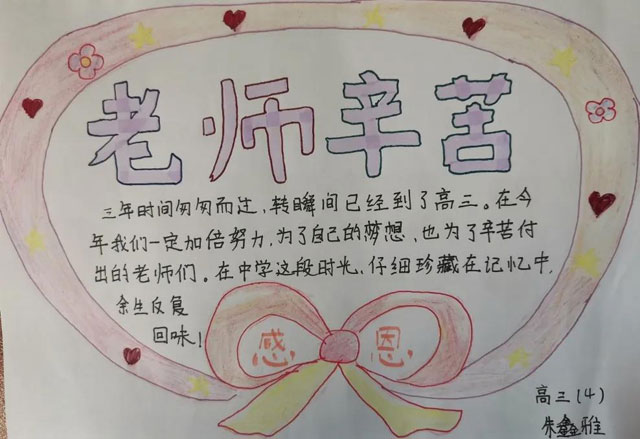 老师辛苦
三年时间匆匆而过，转瞬间已经到了高三。在今
年我们一定加倍努力，为了自己的梦想，也为了辛苦付
出的老师们。在中学这段时光，仔细珍藏在记忆中，
余生反复
回味！
感恩
高三(4)
朱鑫雅